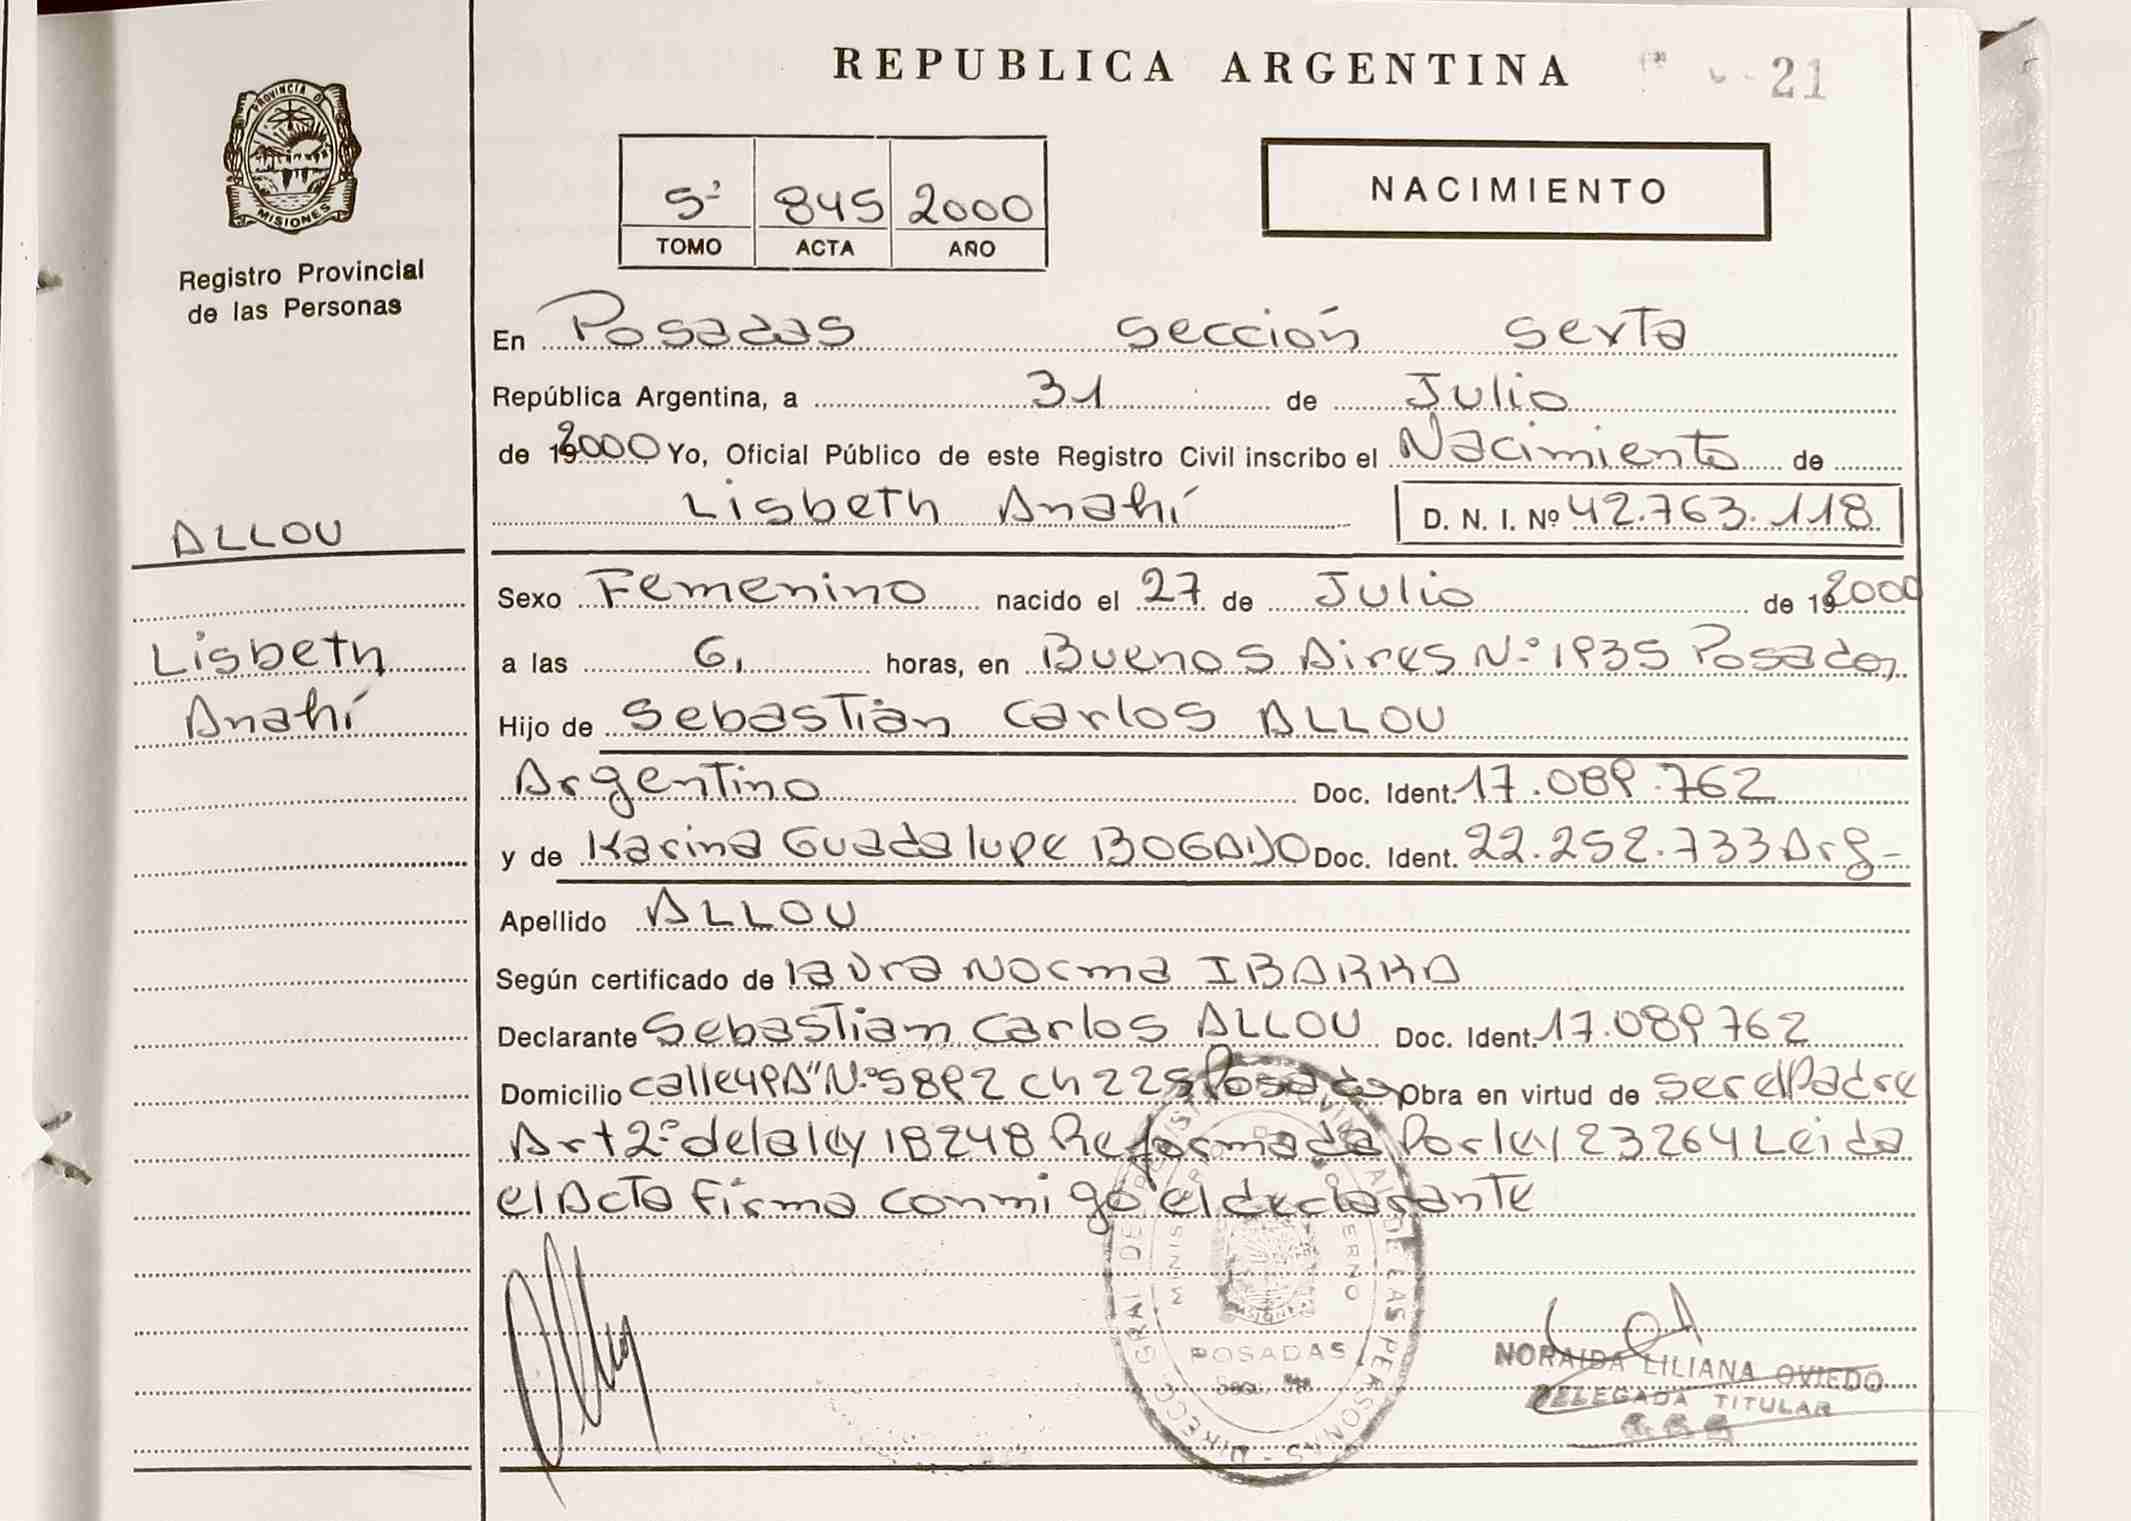 REPUBLICA ARGENTINA
21
PROVINCIA DE
MISIONES
Registro Provincial
de las Personas
5º 845 2000
TOMO ACTA AÑO
NACIMIENTO
En Posadas sección sexta
República Argentina, a 31 de Julio
de 192000 Yo, Oficial Público de este Registro Civil inscribo el Nacimiento de
Lisbeth Anahí D. N. I. Nº 42.763.118
ALLOU
Lisbeth
Anahí
Sexo Femenino nacido el 27 de Julio de 192000
a las 6, horas, en Buenos Aires N.º 1935 Posadas,
Hijo de Sebastián Carlos ALLOU
Argentino Doc. Ident. 17.089.762
y de Karina Guadalupe BOGADO Doc. Ident. 22.252.733 Arg-
Apellido ALLOU
Según certificado de la Dra Norma IBARRA
Declarante Sebastian Carlos ALLOU Doc. Ident. 17.089762
Domicilio calle N.º 5892 ch 225 Posadas Obra en virtud de ser el Padre
Art 2º de la ley 18248 Reformada Por ley 23264 Leida
el Acta firma conmigo el declarante
POSADAS
NORAIDA LILIANA OVIEDO
DELEGADA TITULAR